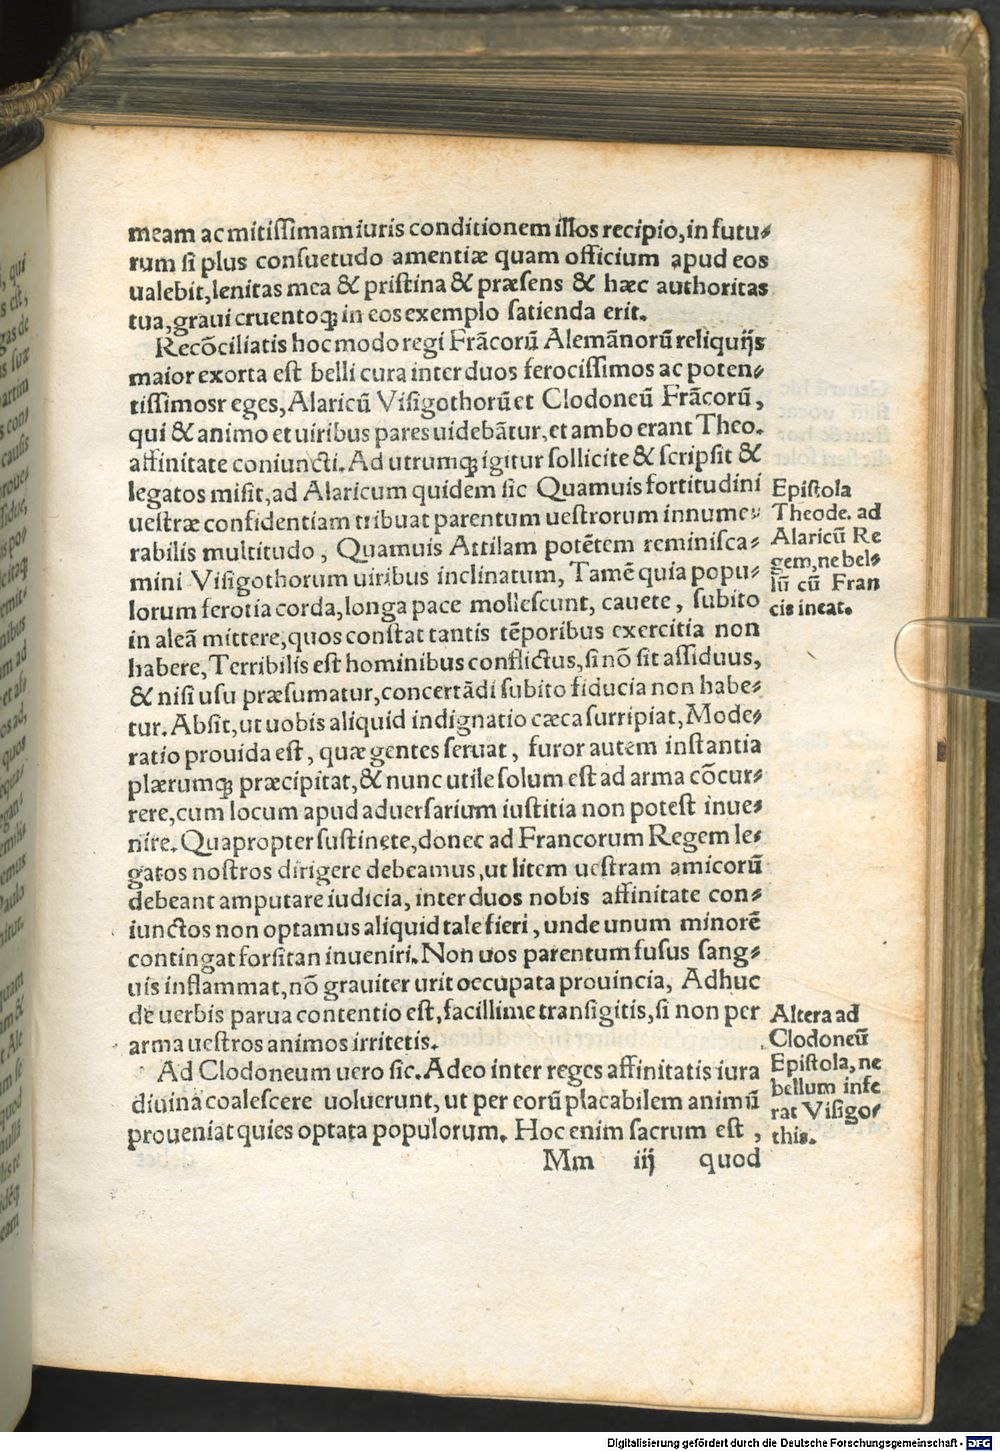 meam ac mitissimam iuris conditionem illos recipio, in futu-
rum si plus consuetudo amentiæ quam officium apud eos
ualebit, lenitas mea & pristina & præsens & hæc authoritas
tua, graui cruentoq; in eos exemplo satienda erit.
Recōciliatis hoc modo regi Frācorū Alemānorū reliquijs
maior exorta est belli cura inter duos ferocissimos ac poten-
tissimosr eges, Alaricū Visigothorū et Clodoneū Frācorū,
qui & animo et uiribus pares uidebātur, et ambo erant Theo.
affinitate coniuncti. Ad utrumq; igitur sollicite & scripsit &
legatos misit, ad Alaricum quidem sic Quamuis fortitudini
uestræ confidentiam tribuat parentum uestrorum innume-
rabilis multitudo, Quamuis Attilam potētem reminisca-
mini Visigothorum uiribus inclinatum, Tamē quia popu-
lorum ferotia corda, longa pace mollescunt, cauete, subito
in aleā mittere, quos constat tantis tēporibus exercitia non
habere, Terribilis est hominibus conflictus, si nō sit assiduus,
& nisi usu præsumatur, concertādi subito fiducia non habe-
tur. Absit, ut uobis aliquid indignatio cæca surripiat, Mode-
ratio prouida est, quæ gentes seruat, furor autem instantia
plærumq; præcipitat, & nunc utile solum est ad arma cōcur-
rere, cum locum apud aduersarium iustitia non potest inue-
nire. Quapropter sustinete, donec ad Francorum Regem le-
gatos nostros dirigere debeamus, ut litem uestram amicorū
debeant amputare iudicia, inter duos nobis affinitate con-
iunctos non optamus aliquid tale fieri, unde unum minorē
contingat forsitan inueniri. Non uos parentum fusus sang-
uis inflammat, nō grauiter urit occupata prouincia, Adhuc
de uerbis parua contentio est, facillime transigitis, si non per
arma uestros animos irritetis.
Ad Clodoneum uero sic. Adeo inter reges affinitatis iura
diuina coalescere uoluerunt, ut per eorū placabilem animū
proueniat quies optata populorum. Hoc enim sacrum est,
Mm iij quod
Epistola
Theode. ad
Alaricū Re
gem, ne bel-
lū cū Fran
cis ineat.
Altera ad
Clodoneū
Epistola, ne
bellum infe
rat Visigo-
this.
Digitalisierung gefördert durch die Deutsche Forschungsgemeinschaft - DFG